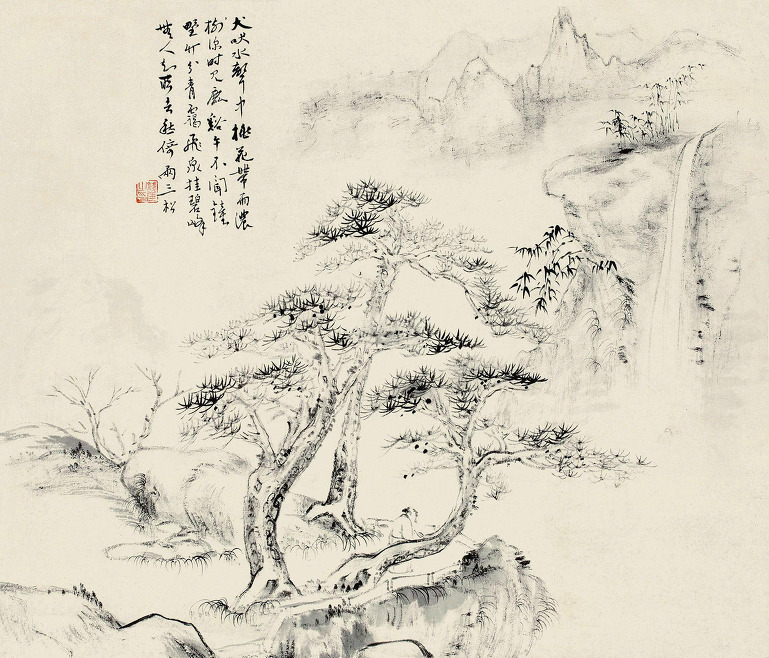 犬吠水聲中桃花帶雨濃
樹深時見鹿谿午不聞鐘
野竹分青靄飛泉挂碧峰
無人知所去愁倚兩三松